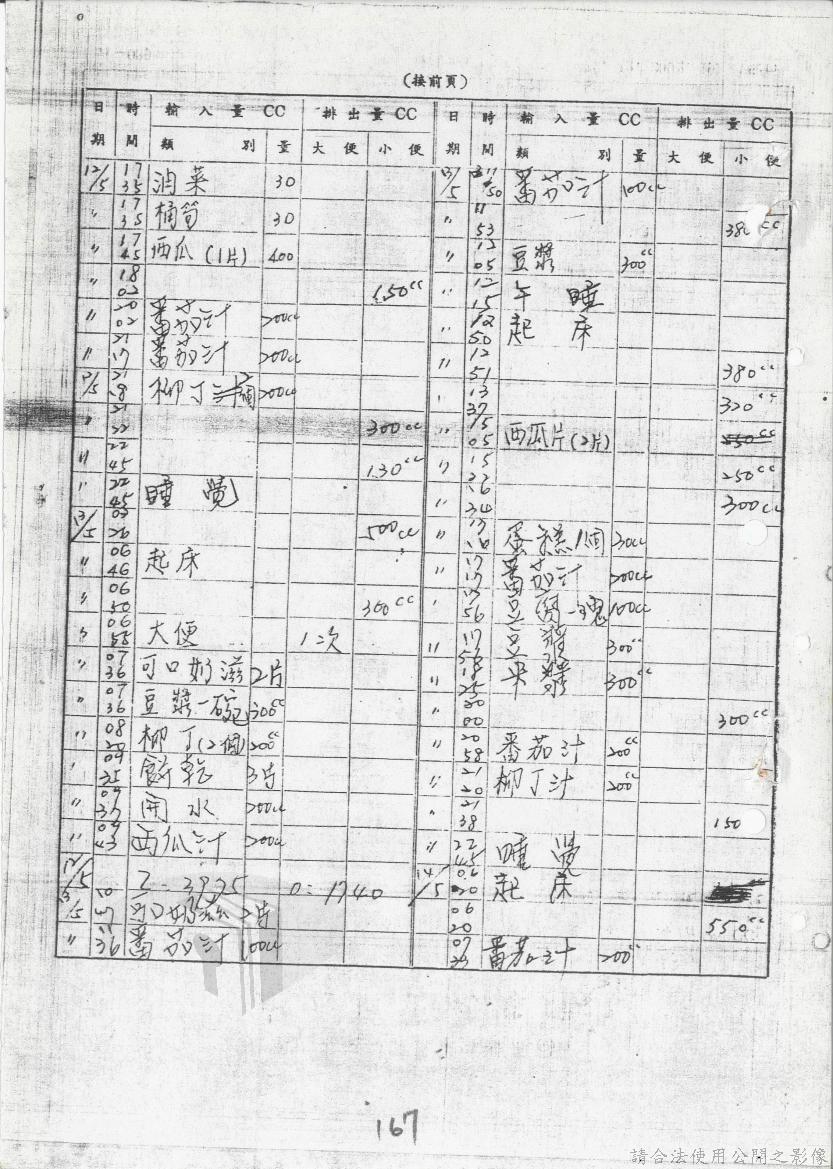 (接前頁)
日期 時間 輸入量CC 排出量CC
類別 量 大便 小便
12/5 17 35 油菜 30
〃 17 35 桶筍 30
〃 17 45 西瓜(1片) 400
〃 18 02 150cc
〃 20 02 蕃茄汁 200cc
〃 21 17 蕃茄汁 200cc
12/5 21 18 柳丁汁2個 200cc
〃 21 22 300cc
〃 22 45 130cc
〃 22 45 睡覺
13/5 03 26 500cc
〃 06 46 起床
〃 06 50 300cc
〃 06 55 大便 1次
〃 07 36 可口奶滋 2片
〃 07 36 豆漿一碗 300cc
〃 08 20 柳丁(2個) 200cc
〃 09 35 餅乾 3片
〃 09 37 開水 200cc
〃 09 43 西瓜汁 200cc
12/5 I=3925 O=1740
13/5 可口奶滋 2片
〃 11 36 蕃茄汁 100cc
日期 時間 輸入量CC 排出量CC
類別 量 大便 小便
13/5 11 50 蕃茄汁 100cc
〃 11 53 380cc
〃 12 05 豆漿 300cc
〃 12 15 午睡
〃 12 50 起床
〃 12 51 380cc
〃 13 37 320cc
〃 15 05 西瓜片(2片)
〃 15 22 250cc
〃 16 34 300cc
〃 17 蛋糕1個 30cc
〃 17 17 蕃茄汁 200cc
〃 17 56 豆腐一塊 100cc
〃 17 豆漿 300cc
〃 18 25 米漿 300cc
20 00 300cc
〃 20 58 蕃茄汁 200cc
〃 21 20 柳丁汁 200cc
〃 21 38 150
〃 22 45 睡覺
14/5 06 20 起床
06 20 550cc
07 蕃茄汁 200cc
167
請合法使用公開之影像